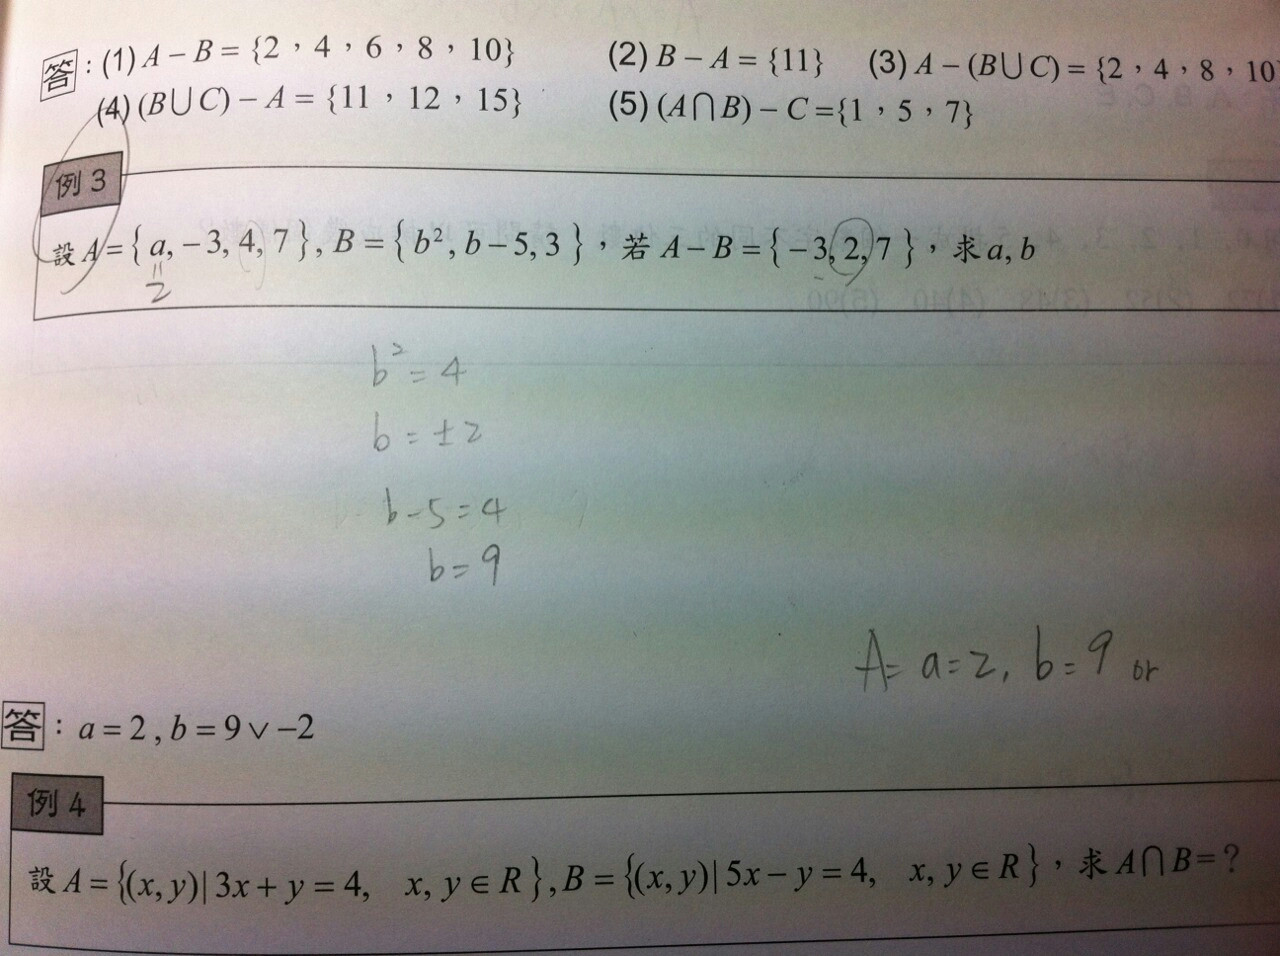 答：(1) A－B = {2，4，6，8，10} (2) B－A = {11} (3) A－(B∪C) = {2，4，8，10
(4) (B∪C)－A = {11，12，15} (5) (A∩B)－C ={1，5，7}
例 3
設 A = { a, －3, 4, 7 }, B = { b², b－5, 3 }，若 A－B = { －3, 2, 7 }，求 a, b
=
2
b² = 4
b = ±2
b－5 = 4
b = 9
A= a=2, b=9 or
答：a = 2 , b = 9 ∨ －2
例 4
設 A = {(x, y)| 3x + y = 4, x, y ∈ R }, B = {(x, y)| 5x－y = 4, x, y ∈ R }，求 A∩B = ?